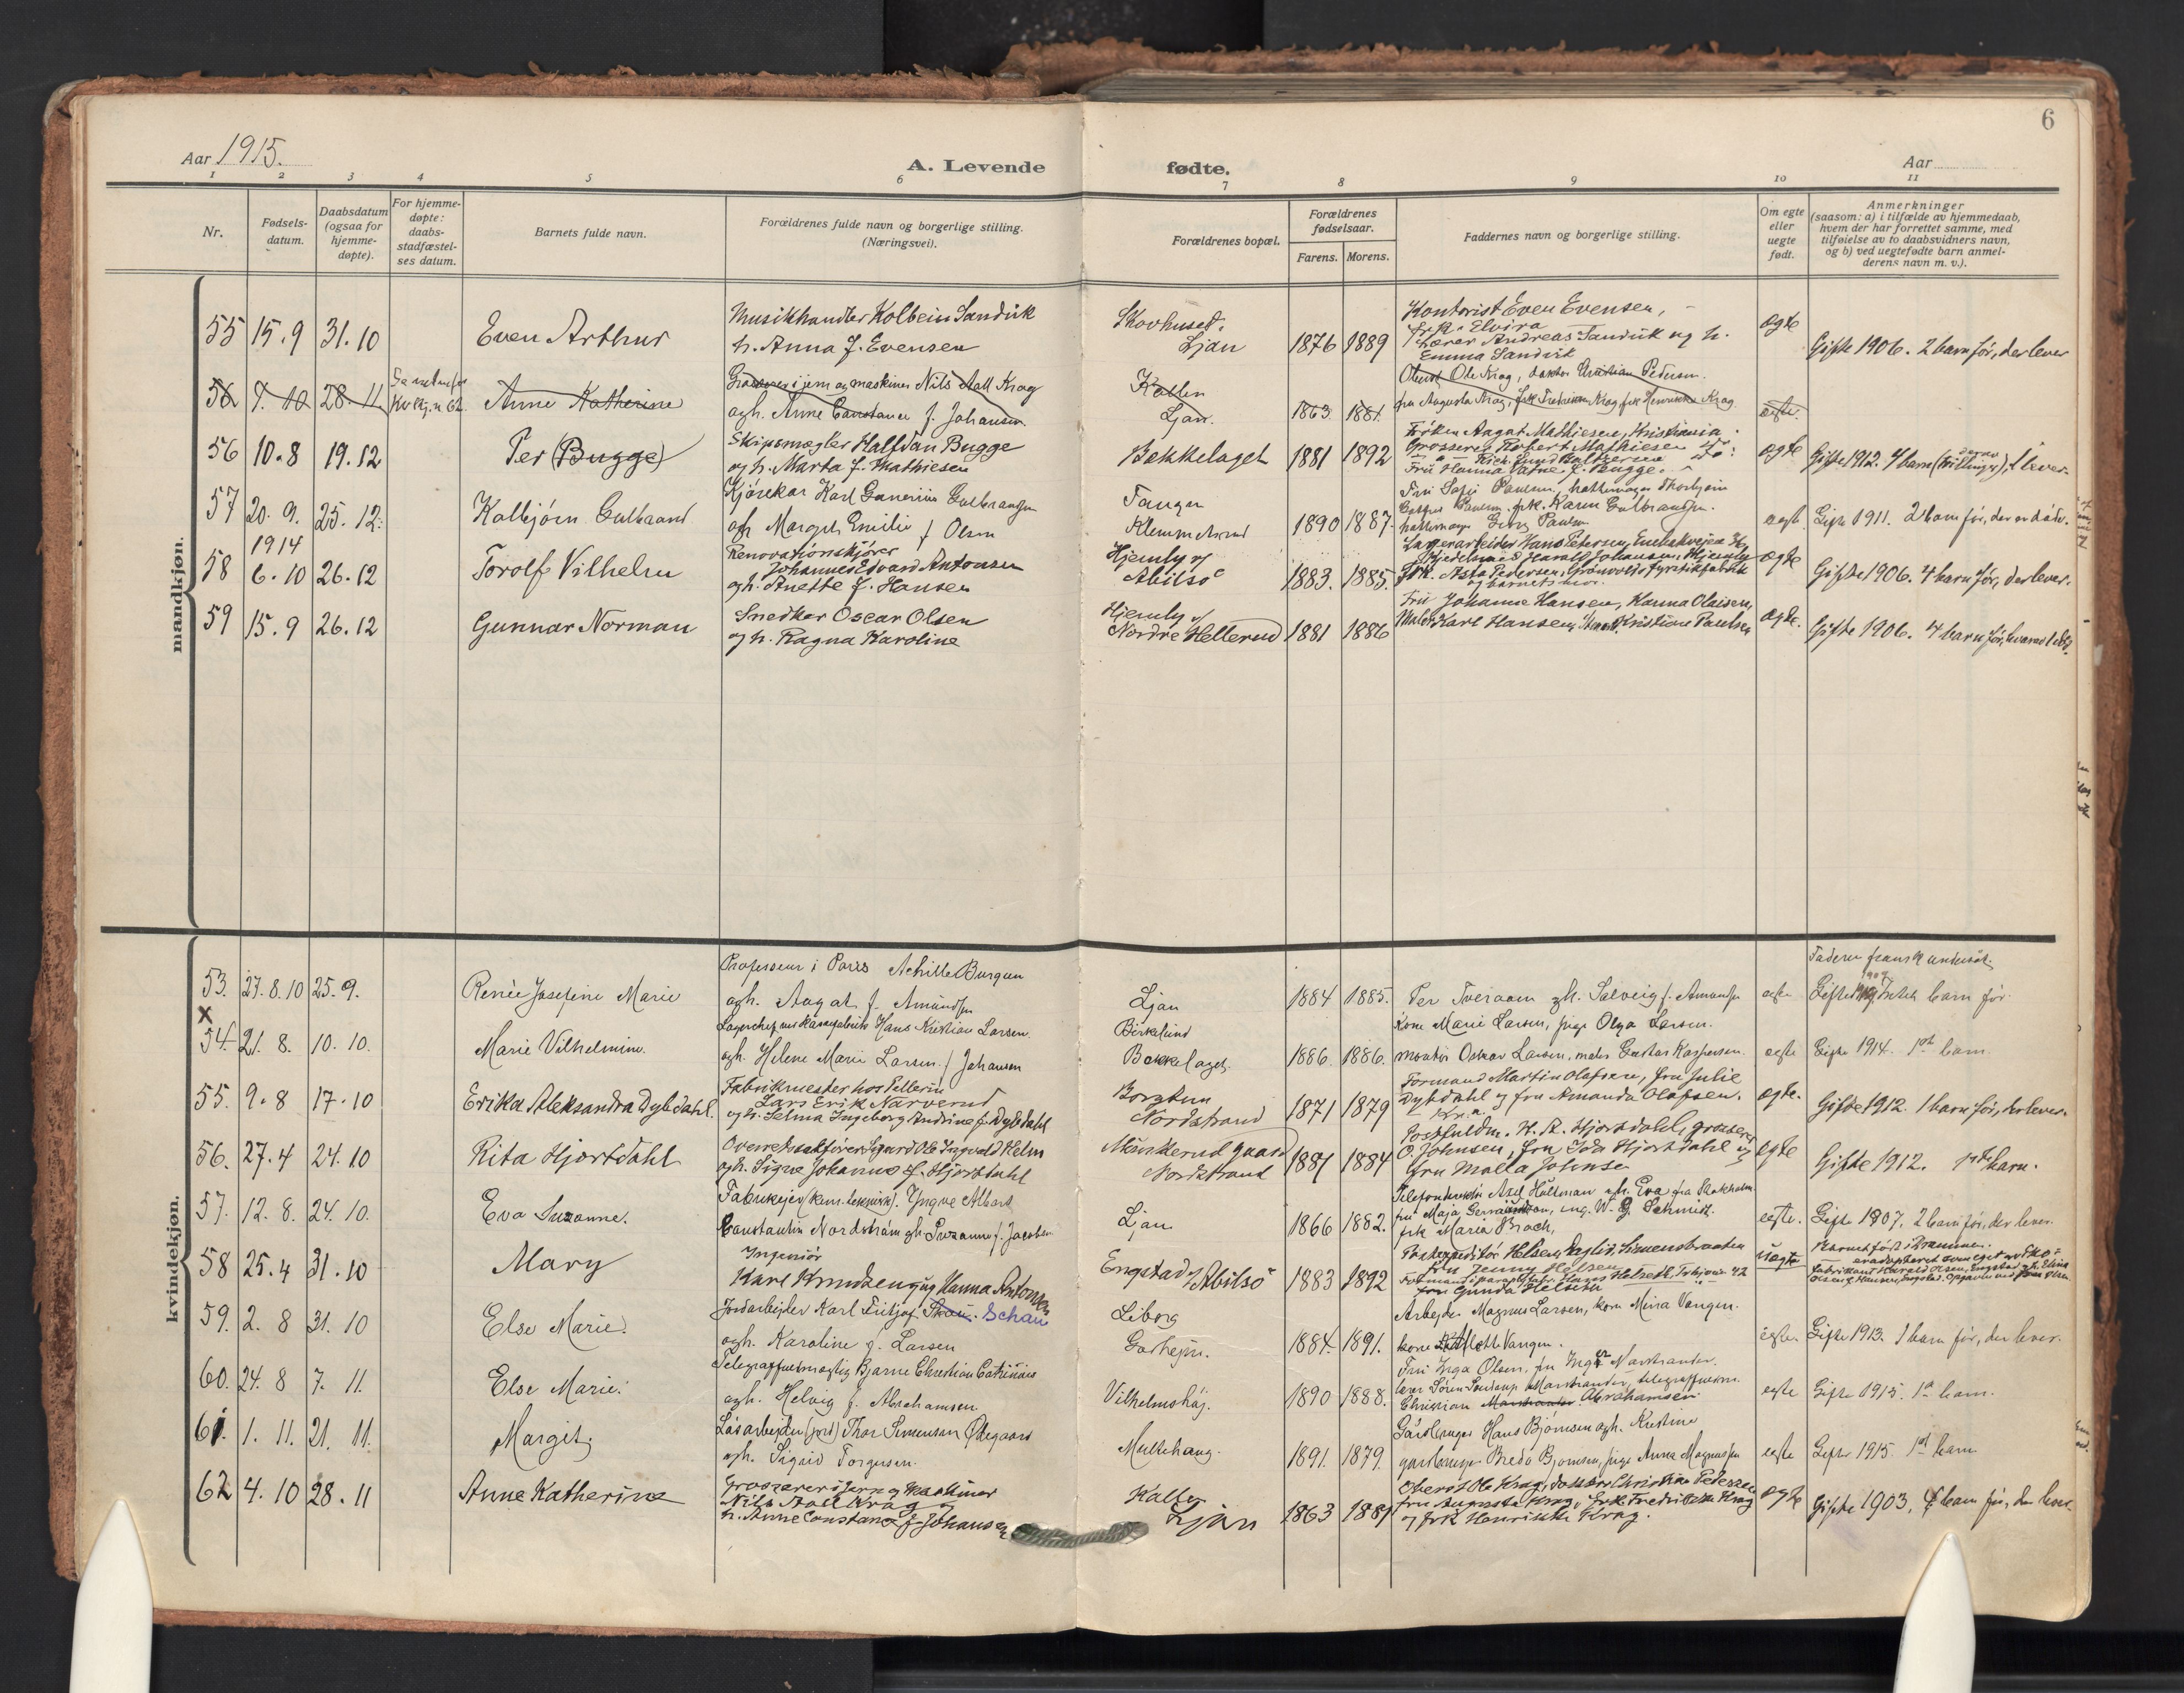 6
Aar 1915.
A. Levende fødte.
Aar
1 2 3 4 5 6 7 8 9 10 11
Nr.
Fødsels-
datum.
Daabsdatum
(ogsaa for
hjemme-
døpte).
For hjemme-
døpte:
daabs-
stadfæstel-
ses datum.
Barnets fulde navn.
Forældrenes fulde navn og borgerlige stilling.
(Næringsvei).
Forældrenes bopæl.
Forældrenes
fødselsaar.
Farens. Morens.
Faddernes navn og borgerlige stilling.
Om egte
eller
uegte
født.
Anmerkninger
(saasom: a) i tilfælde av hjemmedaab,
hvem der har forrettet samme, med
tilføielse av to daabsvidners navn,
og b) ved uegtefødte barn anmel-
derens navn m. v.).
mandkjøn.
55 15.9 31.10 Even Arthur
Musikhandler Kolbein Sandvik
h. Anna f. Evensen
Skovhuset.
Ljan
1876 1889
Kontorist Even Evensen,
frk. Elvira
Lærer Andreas Sandvik og h.
Emma Sandvik
egte
Gifte 1906. 2 barn før, der lever
56 7.10 28.11 Anne Katherine
Grosserer i jern og maskiner Nils Aall Krag
ogh. Anne Constance f. Johansen
Kolben
Ljan.
1863 1881.
Oberst Ole Krag, doktor Christian Pedersen.
fru Augusta Krag, frk Fredrikke Krag frk Henrikke Krag
egte.
56 10.8 19.12 Per (Bugge)
Skipsmægler Halfdan Bugge
og h. Marta f. Mathiesen
Bækkelaget
1881 1892
Frøken Aagot Mathiesen, Kristiania
Grosserer Robert Mathiesen do
Fru Hanna f. Bugge.
egte
Gifte 1912. 4 barn (derav trillinger), 1 lever.
57 20.9. 25.12. Kolbjørn Gulbrand
Kjørekar Karl Gunerius Gulbrandsen
ogh Margit Emilie f Olsen
Tangen
Klemmetsrud
1890 1887.
Fru Sofie Paulsen,
Paulsen, frk. Karen Gulbrandsen.
Georg Paulsen
egte. Gifte 1911. 2 barn før, der er døde.
58 1914 6.10 26.12 Torolf Vilhelm
Renovationskjører
Johannes Edvard Antonsen
ogh. Anette f. Hansen
Hjemly v/
Abilsø
1883. 1885.
Lagerarbeider Hans Petersen,
Harald Johansen, Hjemly
Frk. Asta Pedersen,
og barnets mor.
egte
Gifte 1906. 4 barn før, der lever.
59 15.9 26.12 Gunnar Norman
Snedker Oscar Olsen
og h. Ragna Karoline
Hjemly v/
Nordre Hellerud
1881 1886
Fru Johanne Hansen, Hanna Olaisen,
Maler Karl Hansen, Kristian Paulsen
egte.
Gifte 1906. 4 barn før, hvorav 1 død.
kvindekjøn.
53. 27.8.10 25.9. Renée Josefine Marie
Professeur i Paris Achille Burgun
ogh. Aagot f. Amundsen
Ljan
1884 1885.
Per Tveraaen ogh. Solveig f. Amundsen
egte
Faderen fransk undersåt.
Gifte 1909 Intet barn før.
x
54. 21.8. 10.10. Marie Vilhelmine.
Lagerchef Hans Kristian Larsen
ogh. Helene Marie Larsen f Johansen
Birkelund
Bækkelaget.
1886. 1886.
Kone Marie Larsen, pige Olga Larsen.
montør Oskar Larsen, maler Gustav Kaspersen.
egte Gifte 1914. 1st barn.
55. 9.8 17.10 Erika Aleksandra Dybdahl.
Fabrikmester hos Pellerin
Lars Erik Narverud
og h. Selma Ingeborg Andrine f. Dybdahl
Borgtun
Nordstrand
1871 1879
Formand Martin Olafsen, fru Julie
Dybdahl og fru Amanda Olafsen.
Kr.a.
egte.
Gifte 1912. 1 barn før, der lever.
56. 27.4 24.10 Rita Hjortdahl
Overretssakfører Sigurd Ole Ingvald Helm
ogh. Signe Johanne f. Hjortdahl
Munkerud gaard
Nordstrand
1881 1884
Postfuldm. H. R. Hjortdahl, grosserer
O. Johnsen, fru Ida Hjortdahl og
fru Malla Johnsen
egte
Gifte 1912. 1ste barn.
57. 12.8. 24.10. Eva Suzanne.
Fabrikejer (kem. teknisk). Yngve Albert
Constantin Nordstrøm ogh. Suzanne f. Jacobsen
Ljan
1866 1882.
Telefondirektør Axel Hultman ogh. Eva fra Stokholm.
fru Maja ing. W. G. Schmidt.
frk Maria Broch,
egte. Gifte 1907. 2 barn før, der lever.
58 25.4 31.10 Mary
Ingeniør
Karl Knudsen og ug Hanna Antonsen
Engstad v/ Abilsø
1883 1892
Postexpeditør Helsen Simensbraaten
fru Jenny Helsen
Hans Helseth,
fru Gunda Helseth
uegte
Barnet født i Drammen.
er adopteret som eget av
fabrikant Harald Olsen, Engstad og h. Elvia
Olsen f. Hansen, Engstad.
59. 2.8 31.10 Else Marie.
Jordarbejder Karl Fritjof Skau. Schau
ogh. Karoline f. Larsen
Liborg
Gaahejm.
1884. 1891.
Arbejder Magnus Larsen, kone Mina Vangen.
kone Lotte Vangen.
egte. Gifte 1913. 1 barn før, der lever.
60. 24.8 7.11. Else Marie.
Telegraffuldmægtig Bjarne Christian Catrinius
ogh. Helvig f. Abrahamsen
Vilhelmshøj.
1890 1888.
Fru Inga Olsen, fru Inger Marstrander.
lærer Søren Marstrander, telegraffuldm.
Christian Marstrander Abrahamsen
egte Gifte 1915. 1st barn.
61. 1.11. 21.11. Margit,
Løsarbejder (jord) Thor Simensen Ødegaard
ogh. Sigrid Torgersen.
Multehaug.
1891. 1879.
Gårdbruger Hans Bjørnsen ogh. Kristine
gårdbruger Bredo Bjørnsen, pige Anna Magnussen
egte Gifte 1915 1st barn.
62 4.10 28.11 Anne Katherine
Grosserer i jern og maskiner
Nils Aall Krag og
h. Anne Constance f. Johansen
Kolben
Ljan
1863 1881
Oberst Ole Krag, doktor Christian Pedersen
fru Augusta Krag, frk Fredrikke Krag
og frk Henrikke Krag.
egte
Gifte 1903, barn før, der lever.